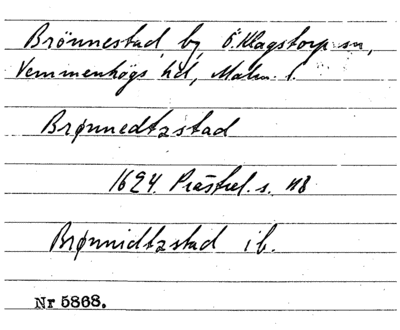 Brönnestad, by, Ö. Klagstorp sn,
Vemmenhögs hd, Malm. l.
Brønnedtzstad
1624. Prästrel. s. 118
Brønnidtzstad ib.
Nr 5868.